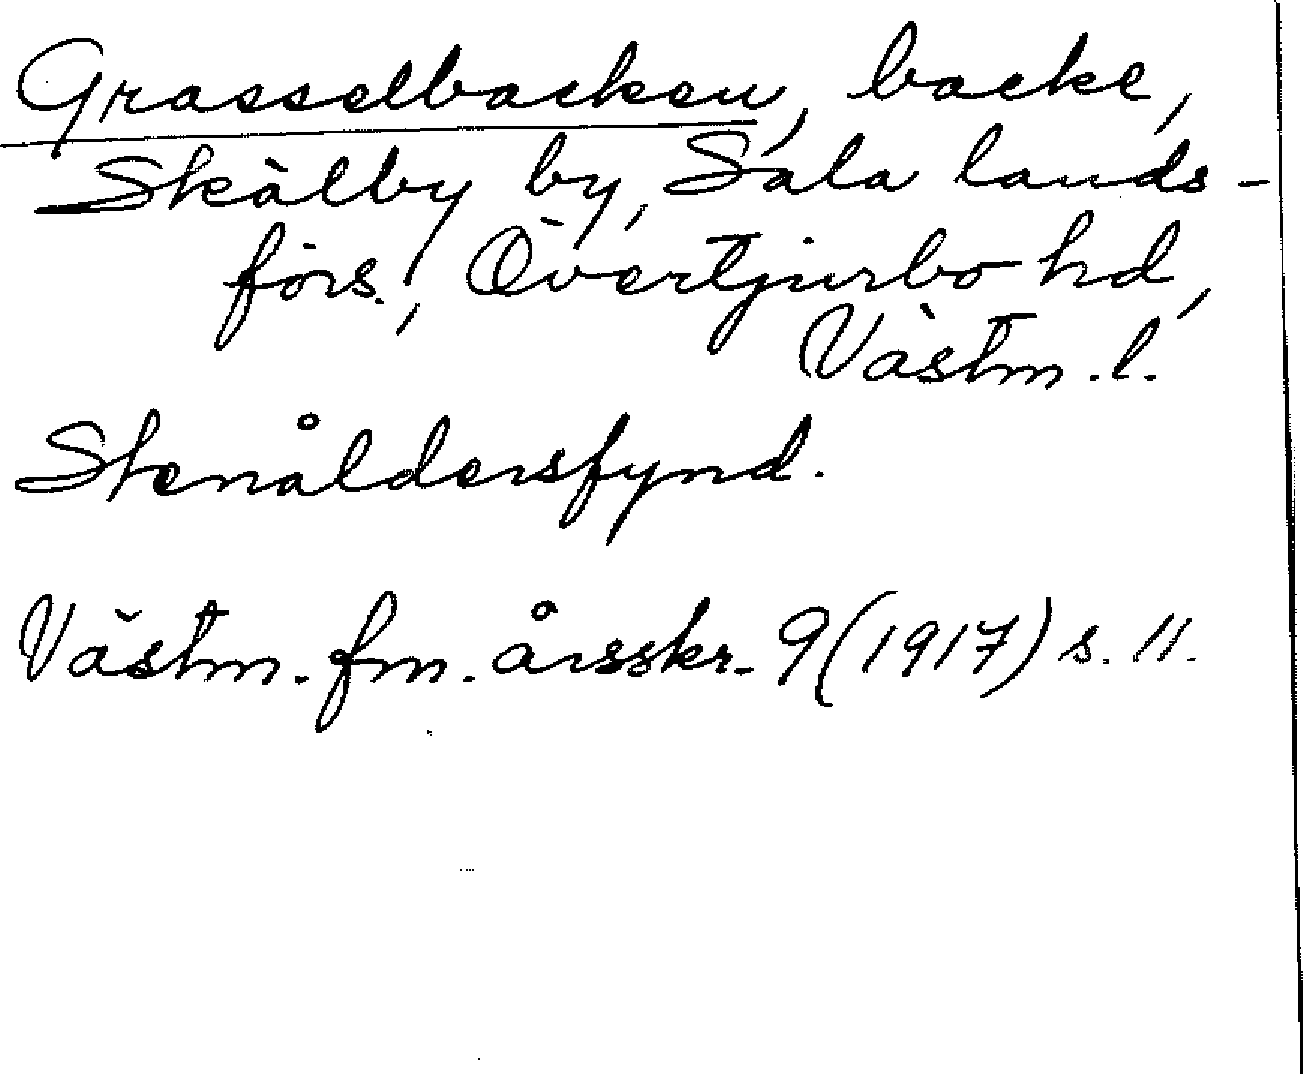 Grasselbacken, backe,
Skälby by, Sala lands-
förs., Övertjurbo hd,
Västm. l.
Stenåldersfynd.
Västm. fm. årsskr. 9 (1917) s. 11.